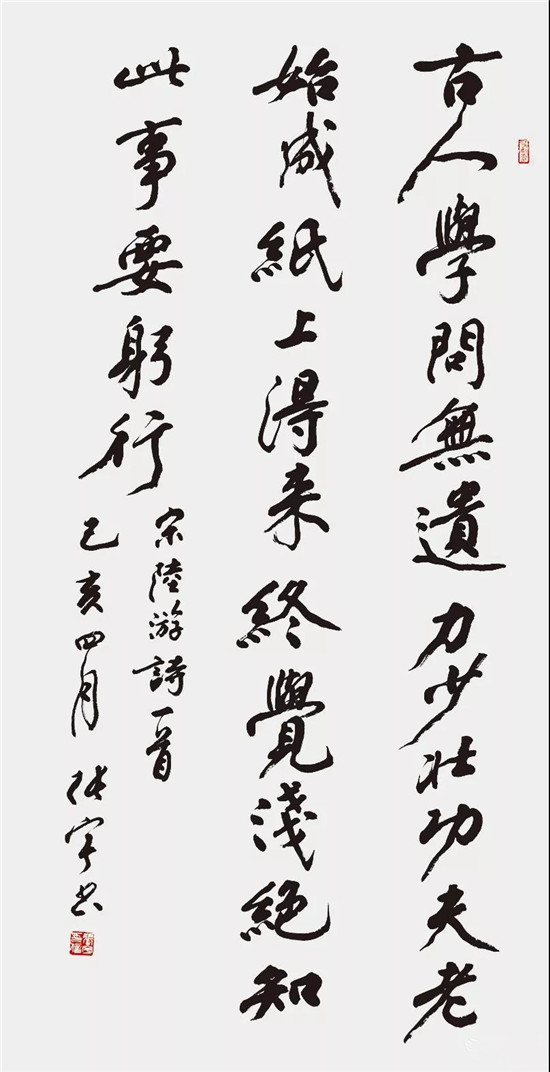 古人學問無遺力少壯功夫老
始成紙上得来終覺淺絕知
此事要躬行
宋陸游詩一首
己亥四月 張宇书